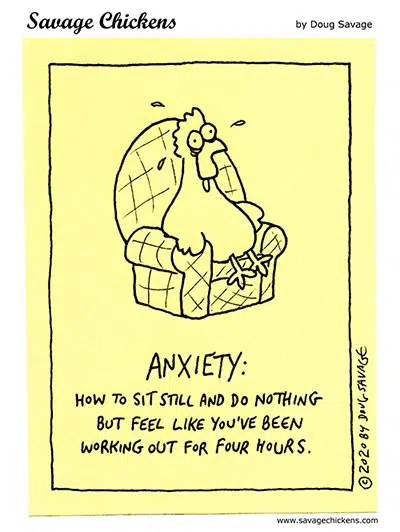 Savage Chickens
by Doug Savage
ANXIETY:
HOW TO SIT STILL AND DO NOTHING
BUT FEEL LIKE YOU'VE BEEN
WORKING OUT FOR FOUR HOURS.
© 2020 BY DOUG SAVAGE
www.savagechickens.com